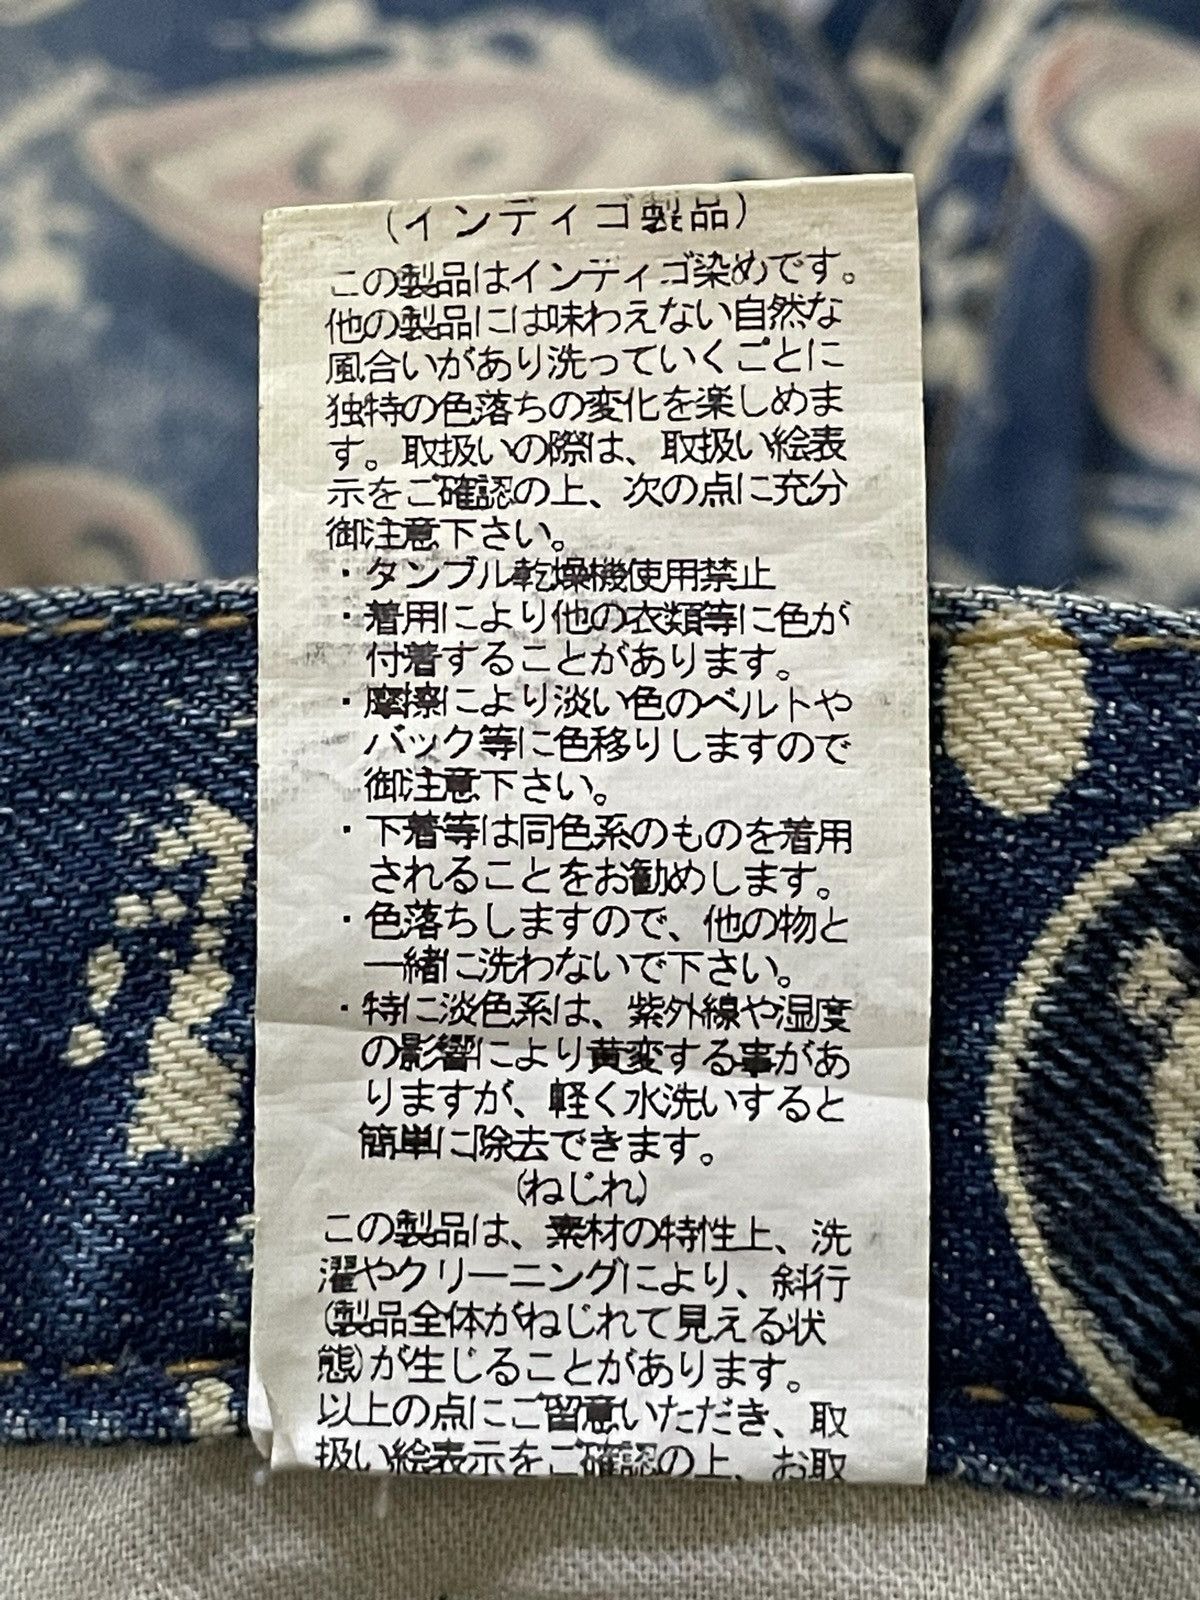 (インディゴ製品)
この製品はインディゴ染めです。
他の製品には味わえない自然な
風合いがあり洗っていくごとに
独特の色落ちの変化を楽しめま
す。取扱いの際は、取扱い絵表
示をご確認の上、次の点に充分
御注意下さい。
・タンブル乾燥機使用禁止
・着用により他の衣類等に色が
付着することがあります。
・摩擦により淡い色のベルトや
バック等に色移りしますので
御注意下さい。
・下着等は同色系のものを着用
されることをお勧めします。
・色落ちしますので、他の物と
一緒に洗わないで下さい。
・特に淡色系は、紫外線や湿度
の影響により黄変する事があ
りますが、軽く水洗いすると
簡単に除去できます。
(ねじれ)
この製品は、素材の特性上、洗
濯やクリーニングにより、斜行
(製品全体がねじれて見える状
態)が生じることがあります。
以上の点にご留意いただき、取
扱い絵表示をご確認の上、お取